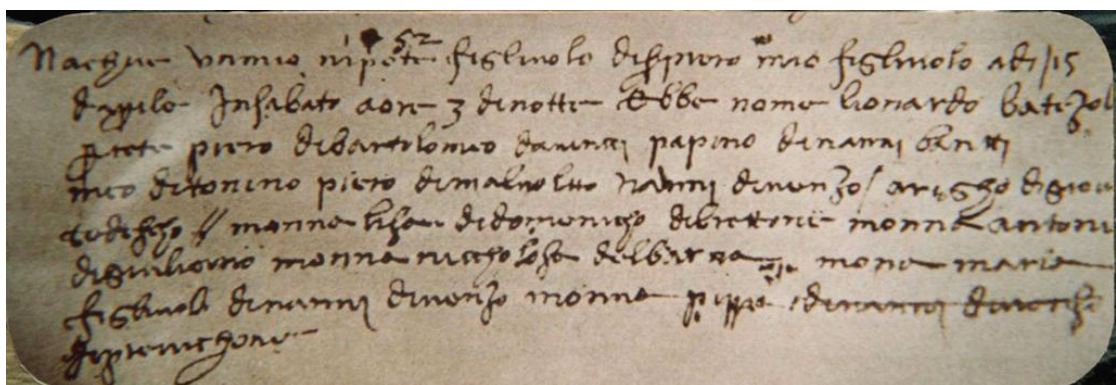 52
Nachue un mio nipote figliuolo di ser piero mio figliuolo adi 15
daprile in sabato a ore 3 di notte Ebbe nome lionardo batezol
prete piero di bartolomeo da uinci papino di nanni banti
meo di tonino piero di maluolto nanni di uenzo / arigho di giou
tedescho // monna lisa di domenicho di brettone monna antoni
di giuliano monna nicholosa del barna mona maria
figliuola di nanni di uenzo monna pippa di nanni di uenzo
di preuichone